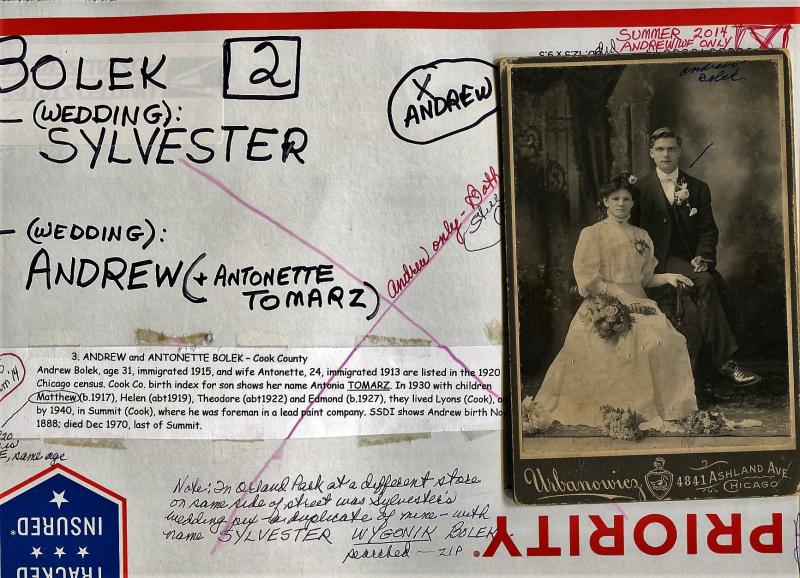 BOLEK 2
– (WEDDING):
SYLVESTER
– (WEDDING):
ANDREW (+ ANTONETTE
TOMARZ)
X
ANDREW
SUMMER 2014
ANDREW/WF ONLY
Andrew only – Both
Andrew
Bolek
3. ANDREW and ANTONETTE BOLEK – Cook County
Andrew Bolek, age 31, immigrated 1915, and wife Antonette, 24, immigrated 1913 are listed in the 1920
Chicago census. Cook Co. birth index for son shows her name Antonia TOMARZ. In 1930 with children
Matthew (b.1917), Helen (abt1919), Theodore (abt1922) and Edmond (b.1927), they lived Lyons (Cook),
by 1940, in Summit (Cook), where he was foreman in a lead paint company. SSDI shows Andrew birth Nov
1888; died Dec 1970, last of Summit.
same age
Note: In Orland Park at a different store
on same side of street was Sylvester's
wedding pix – a duplicate of mine – with
name SYLVESTER WYGONIK BOLEK.
searched — ZIP
Urbanowicz 4841 ASHLAND AVE.
CHICAGO
PRIORITY
TRACKED
INSURED